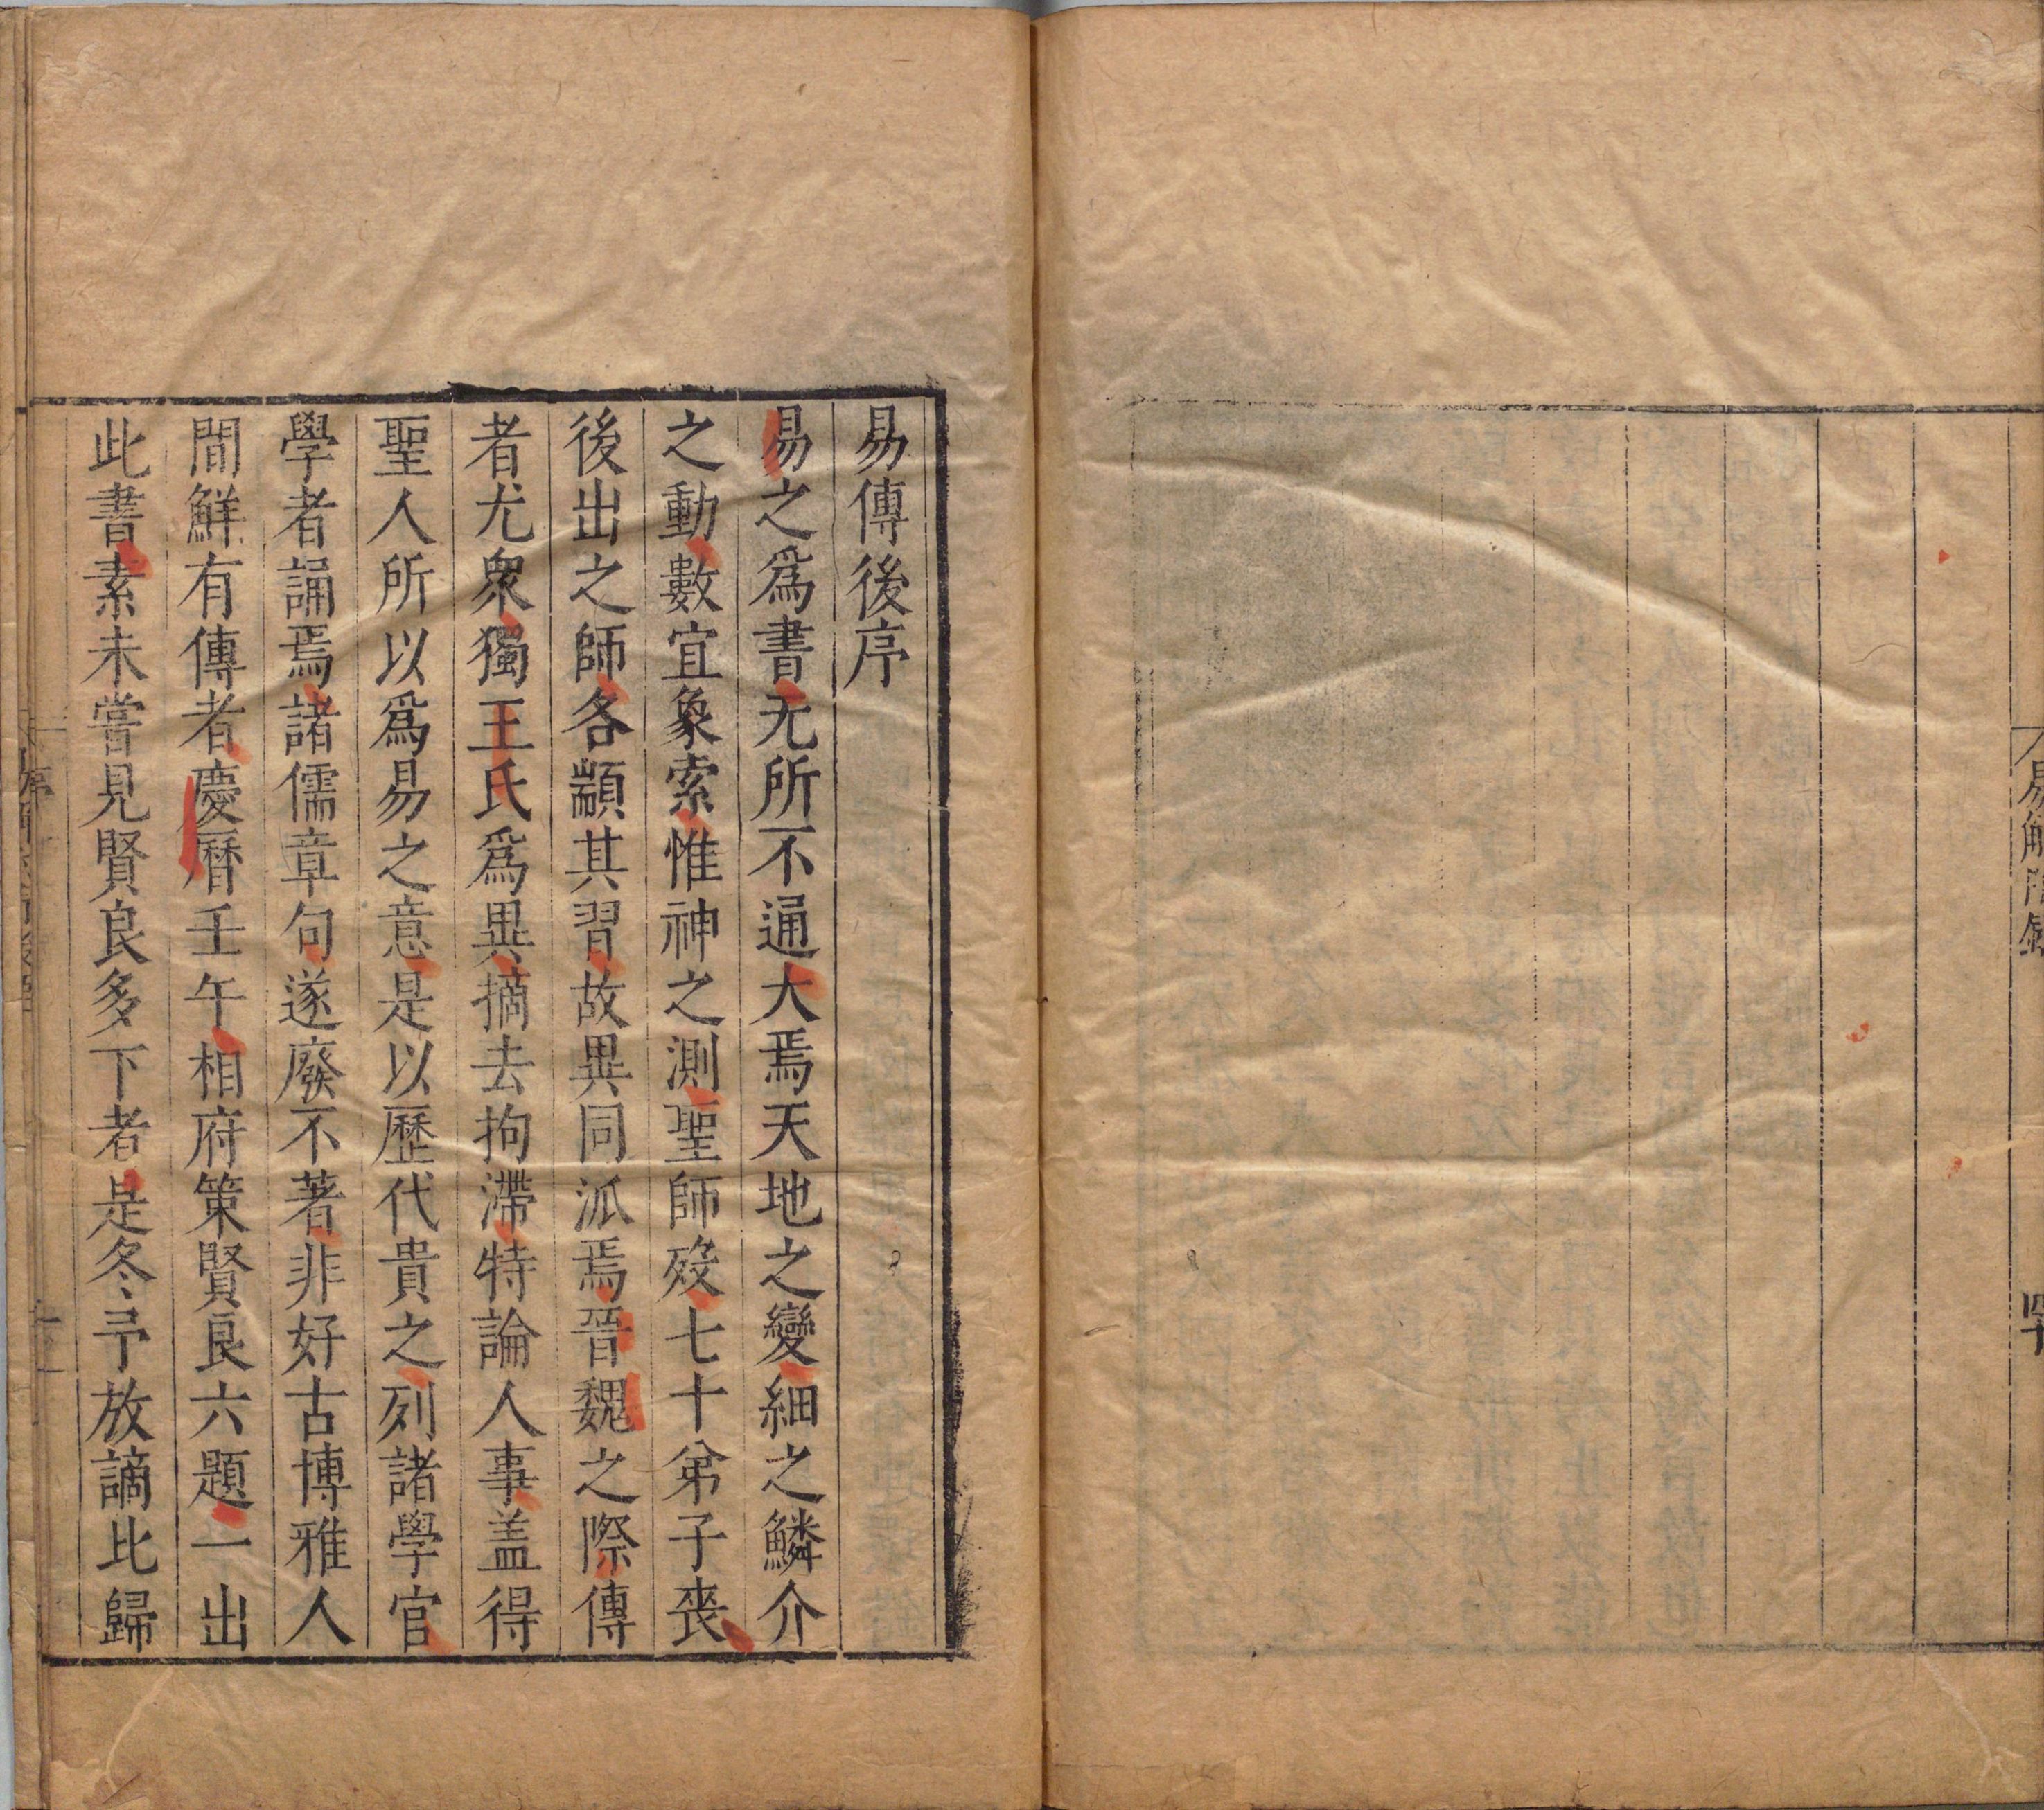 易傳後序
易之爲書无所不通大焉天地之變細之鱗介
之動數宜象索惟神之測聖師殁七十弟子喪
後出之師各顓其習故異同派焉晉魏之際傳
者尤衆獨王氏爲異摘去拘滯特論人事盖得
聖人所以爲易之意是以歷代貴之列諸學官
學者誦焉諸儒章句遂廢不著非好古博雅人
間鮮有傳者慶曆壬午相府策賢良六題一出
此書素未嘗見賢良多下者是冬予放謫北歸